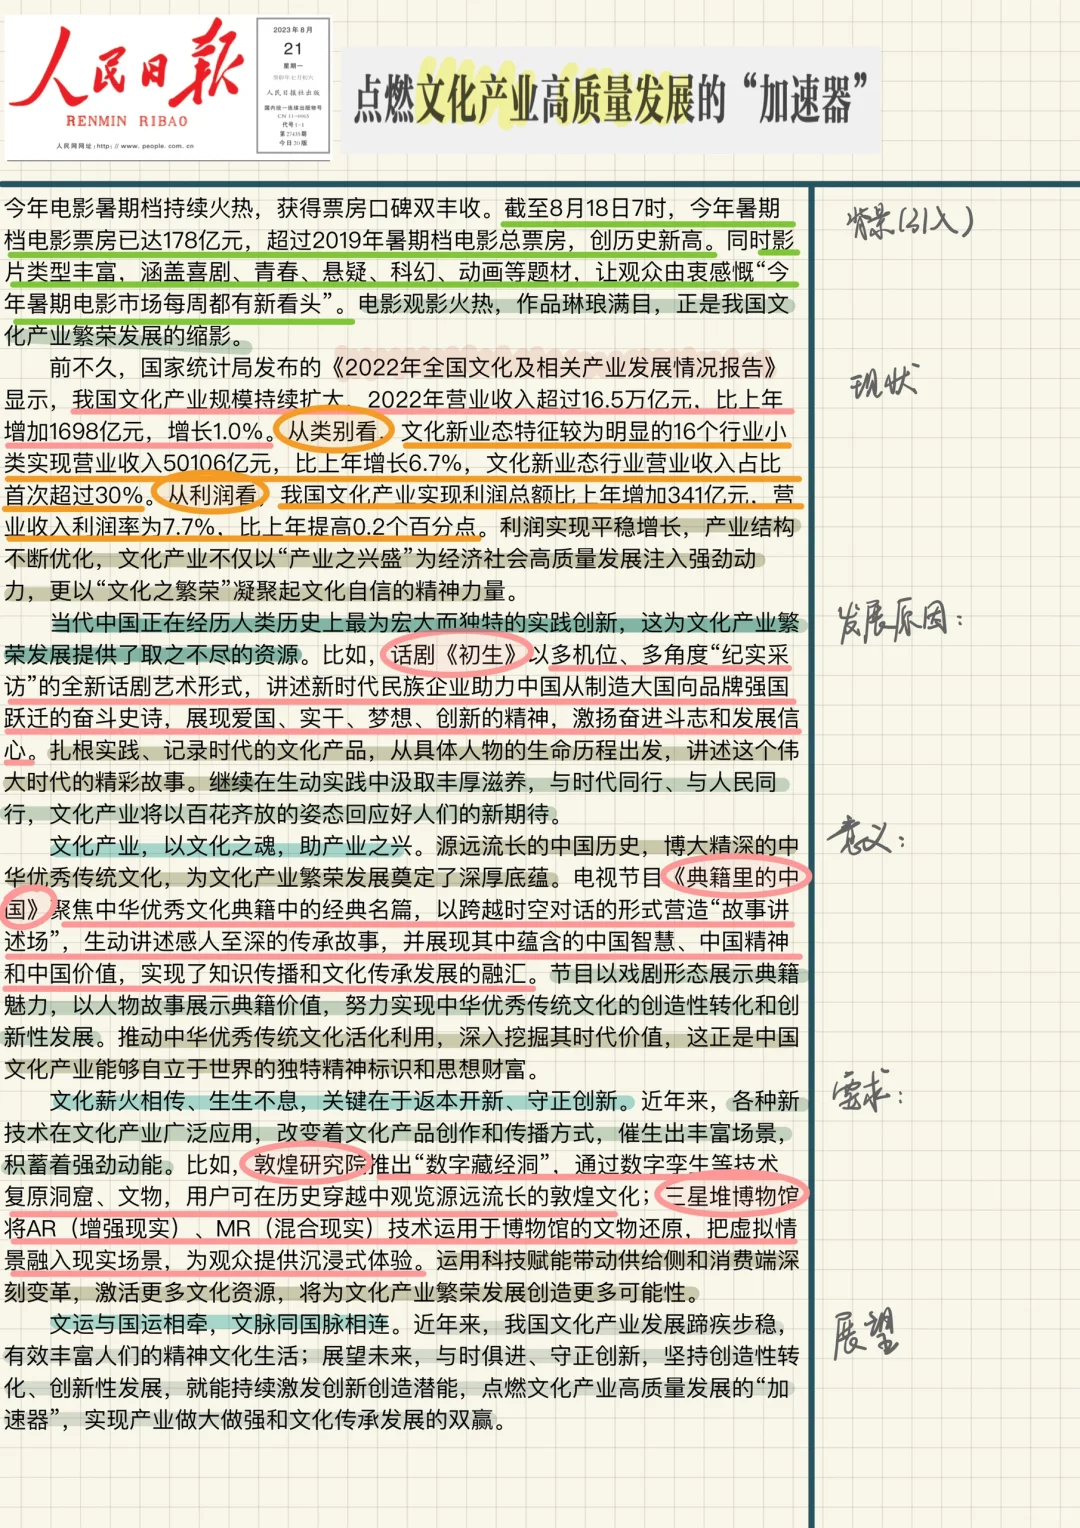 人民日报
RENMIN RIBAO
人民网网址:http://www.people.com.cn
2023年8月
21
星期一
癸卯年七月初六
人民日报社出版
国内统一连续出版物号
CN 11-0065
代号1-1
第27435期
今日20版
点燃文化产业高质量发展的“加速器”
今年电影暑期档持续火热，获得票房口碑双丰收。截至8月18日7时，今年暑期
档电影票房已达178亿元，超过2019年暑期档电影总票房，创历史新高。同时影
片类型丰富，涵盖喜剧、青春、悬疑、科幻、动画等题材，让观众由衷感慨“今
年暑期电影市场每周都有新看头”。电影观影火热，作品琳琅满目，正是我国文
化产业繁荣发展的缩影。
背景(引入)
前不久，国家统计局发布的《2022年全国文化及相关产业发展情况报告》
显示，我国文化产业规模持续扩大，2022年营业收入超过16.5万亿元，比上年
增加1698亿元，增长1.0%。从类别看，文化新业态特征较为明显的16个行业小
类实现营业收入50106亿元，比上年增长6.7%，文化新业态行业营业收入占比
首次超过30%。从利润看，我国文化产业实现利润总额比上年增加341亿元，营
业收入利润率为7.7%，比上年提高0.2个百分点。利润实现平稳增长，产业结构
不断优化，文化产业不仅以“产业之兴盛”为经济社会高质量发展注入强劲动
力，更以“文化之繁荣”凝聚起文化自信的精神力量。
现状
当代中国正在经历人类历史上最为宏大而独特的实践创新，这为文化产业繁
荣发展提供了取之不尽的资源。比如，话剧《初生》以多机位、多角度“纪实采
访”的全新话剧艺术形式，讲述新时代民族企业助力中国从制造大国向品牌强国
跃迁的奋斗史诗，展现爱国、实干、梦想、创新的精神，激扬奋进斗志和发展信
心。扎根实践、记录时代的文化产品，从具体人物的生命历程出发，讲述这个伟
大时代的精彩故事。继续在生动实践中汲取丰厚滋养，与时代同行、与人民同
行，文化产业将以百花齐放的姿态回应好人们的新期待。
发展原因：
文化产业，以文化之魂，助产业之兴。源远流长的中国历史，博大精深的中
华优秀传统文化，为文化产业繁荣发展奠定了深厚底蕴。电视节目《典籍里的中
国》聚焦中华优秀文化典籍中的经典名篇，以跨越时空对话的形式营造“故事讲
述场”，生动讲述感人至深的传承故事，并展现其中蕴含的中国智慧、中国精神
和中国价值，实现了知识传播和文化传承发展的融汇。节目以戏剧形态展示典籍
魅力，以人物故事展示典籍价值，努力实现中华优秀传统文化的创造性转化和创
新性发展。推动中华优秀传统文化活化利用，深入挖掘其时代价值，这正是中国
文化产业能够自立于世界的独特精神标识和思想财富。
意义：
文化薪火相传、生生不息，关键在于返本开新、守正创新。近年来，各种新
技术在文化产业广泛应用，改变着文化产品创作和传播方式，催生出丰富场景，
积蓄着强劲动能。比如，敦煌研究院推出“数字藏经洞”，通过数字孪生等技术
复原洞窟、文物，用户可在历史穿越中观览源远流长的敦煌文化；三星堆博物馆
将AR（增强现实）、MR（混合现实）技术运用于博物馆的文物还原，把虚拟情
景融入现实场景，为观众提供沉浸式体验。运用科技赋能带动供给侧和消费端深
刻变革，激活更多文化资源，将为文化产业繁荣发展创造更多可能性。
需求：
文运与国运相牵，文脉同国脉相连。近年来，我国文化产业发展蹄疾步稳，
有效丰富人们的精神文化生活；展望未来，与时俱进、守正创新，坚持创造性转
化、创新性发展，就能持续激发创新创造潜能，点燃文化产业高质量发展的“加
速器”，实现产业做大做强和文化传承发展的双赢。
展望